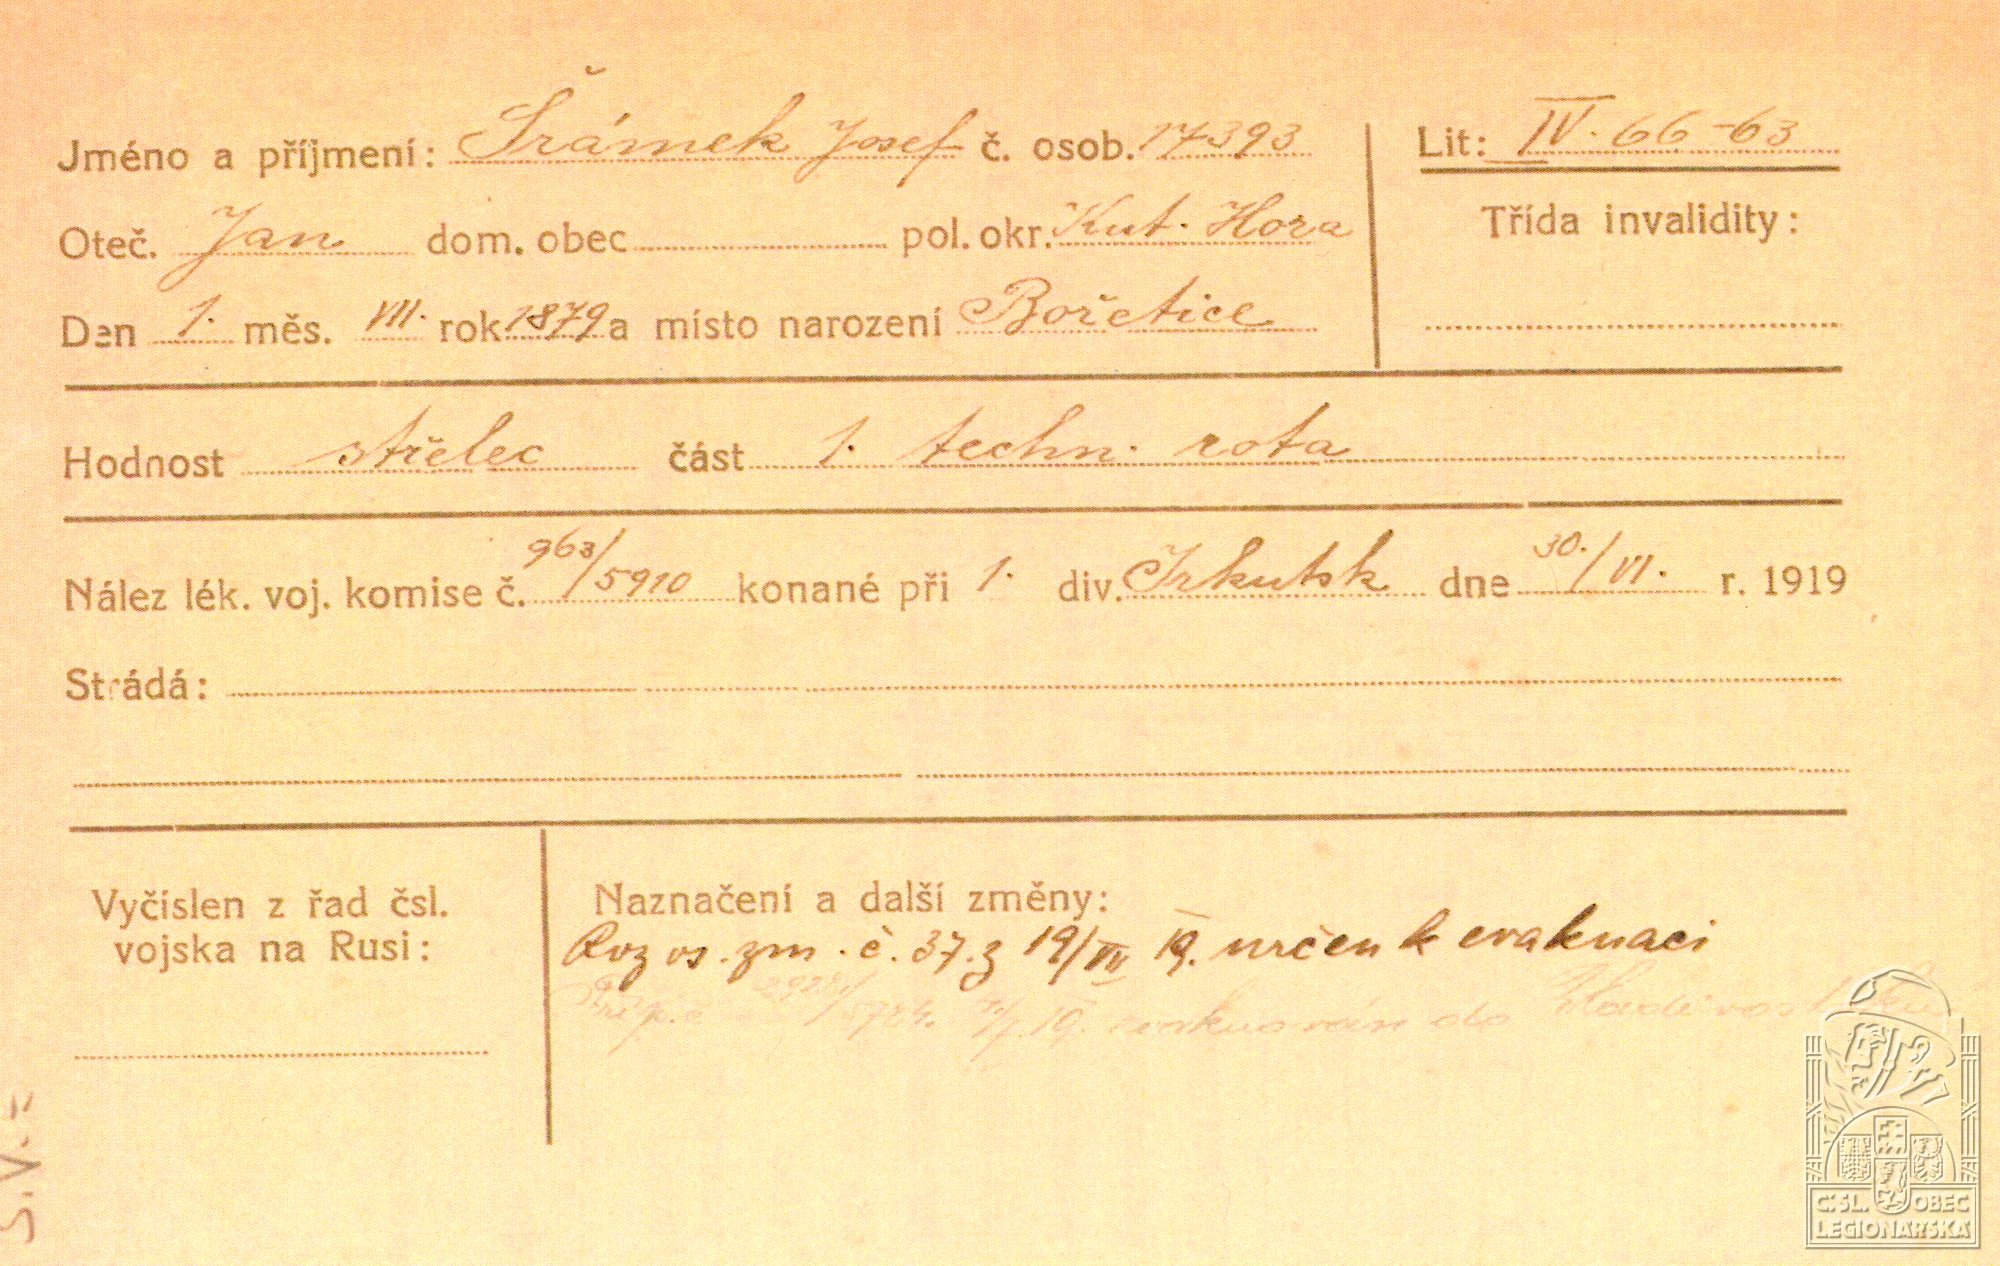 Jméno a příjmení: Šrámek Josef č. osob. 17393
Lit: IV. 66-63
Oteč. Jan dom. obec pol. okr. Kut. Hora
Třída invalidity:
Den 1. měs. VII. rok 1879 a místo narození Bořetice
Hodnost střelec část 1. techn. rota
Nález lék. voj. komise č. 963/5910 konané při 1. div. Irkutsk dne 30./VI. r. 1919
Strádá:
Vyčíslen z řad čsl.
vojska na Rusi:
Naznačení a další změny:
Roz os. zm. č. 37. z 19/VII 19. určen k evakuaci
evakuován do Vladivostoku
S.V.
Č.SL. OBEC
LEGIONÁŘSKÁ